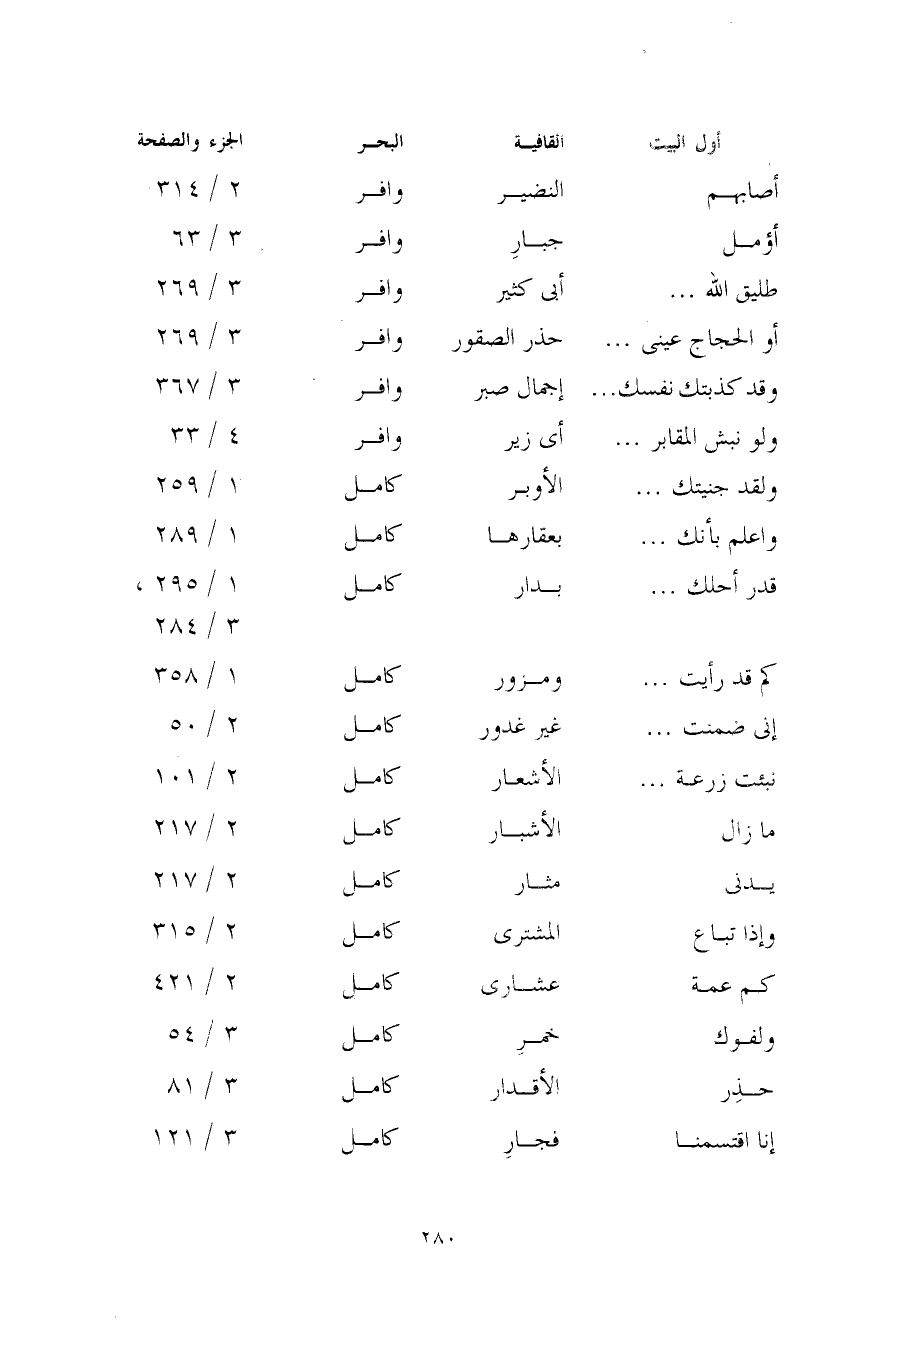 أول البيت القافية البحر الجزء والصفحة
أصابهم النضير وافر ٢ / ٣١٤
أؤمل جبارِ وافر ٣ / ٦٣
طليق الله ... أبى كثير وافر ٣ / ٢٦٩
أو الحجاج عينى ... حذر الصقور وافر ٣ / ٢٦٩
وقد كذبتك نفسك... إجمال صبر وافر ٣ / ٣٦٧
ولو نبش المقابر ... أى زير وافر ٤ / ٣٣
ولقد جنيتك ... الأوبر كامل ١ / ٢٥٩
واعلم بأنك ... بعقارها كامل ١ / ٢٨٩
قدر أحلك ... بدار كامل ١ / ٢٩٥ ،
٣ / ٢٨٤
كم قد رأيت ... ومزور كامل ١ / ٣٥٨
إنى ضمنت ... غير غدور كامل ٢ / ٥٠
نبئت زرعة ... الأشعار كامل ٢ / ١٠١
ما زال الأشبار كامل ٢ / ٢١٧
يدنى مثار كامل ٢ / ٢١٧
وإذا تباع المشترى كامل ٢ / ٣١٥
كم عمة عشارى كامل ٢ / ٤٢١
ولفوك خمرِ كامل ٣ / ٥٤
حذِر الأقدار كامل ٣ / ٨١
إنا اقتسمنا فجارِ كامل ٣ / ١٢١
٢٨٠